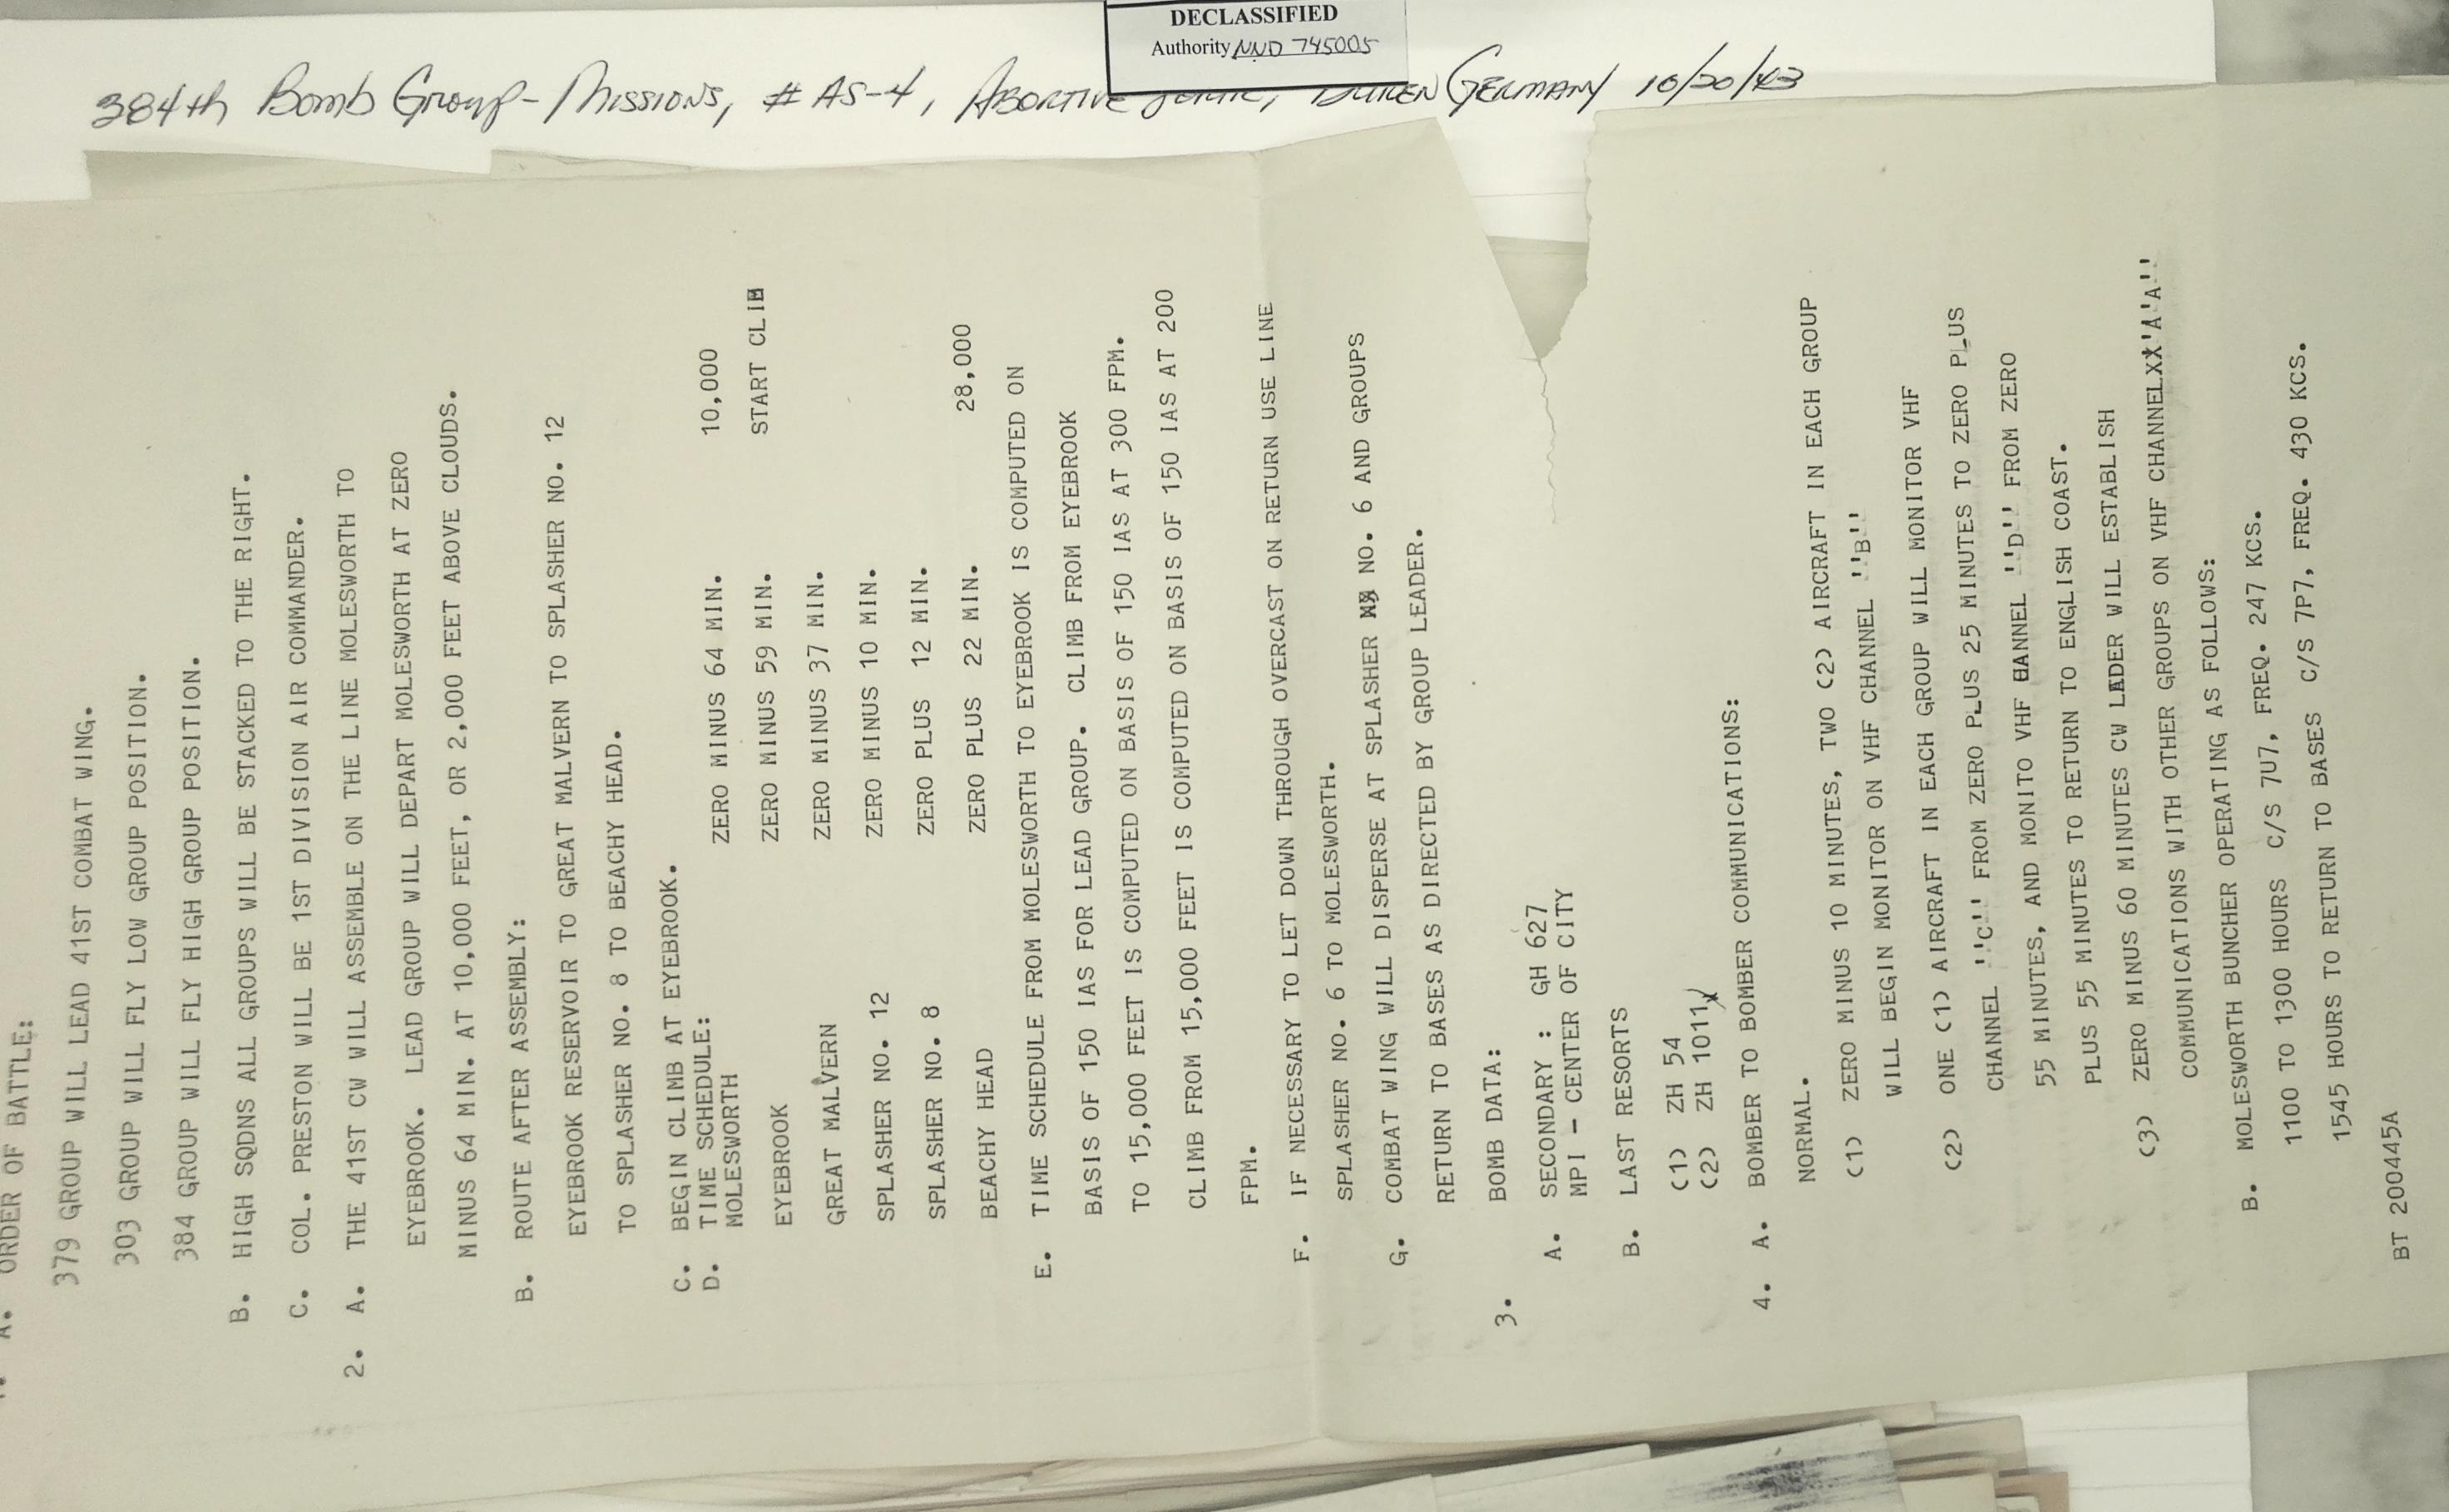 DECLASSIFIED
Authority NND 745005
384th Bomb Group - Missions, # AS-4, Abortive Germany 10/20/43
A. ORDER OF BATTLE:
379 GROUP WILL LEAD 41ST COMBAT WING.
303 GROUP WILL FLY LOW GROUP POSITION.
384 GROUP WILL FLY HIGH GROUP POSITION.
B. HIGH SQDNS ALL GROUPS WILL BE STACKED TO THE RIGHT.
C. COL. PRESTON WILL BE 1ST DIVISION AIR COMMANDER.
2. A. THE 41ST CW WILL ASSEMBLE ON THE LINE MOLESWORTH TO
EYEBROOK. LEAD GROUP WILL DEPART MOLESWORTH AT ZERO
MINUS 64 MIN. AT 10,000 FEET, OR 2,000 FEET ABOVE CLOUDS.
B. ROUTE AFTER ASSEMBLY:
EYEBROOK RESERVOIR TO GREAT MALVERN TO SPLASHER NO. 12
TO SPLASHER NO. 8 TO BEACHY HEAD.
C. BEGIN CLIMB AT EYEBROOK.
D. TIME SCHEDULE:
MOLESWORTH ZERO MINUS 64 MIN. 10,000
EYEBROOK ZERO MINUS 59 MIN. START CLIM
GREAT MALVERN ZERO MINUS 37 MIN.
SPLASHER NO. 12 ZERO MINUS 10 MIN.
SPLASHER NO. 8 ZERO PLUS 12 MIN.
BEACHY HEAD ZERO PLUS 22 MIN. 28,000
E. TIME SCHEDULE FROM MOLESWORTH TO EYEBROOK IS COMPUTED ON
BASIS OF 150 IAS FOR LEAD GROUP. CLIMB FROM EYEBROOK
TO 15,000 FEET IS COMPUTED ON BASIS OF 150 IAS AT 300 FPM.
CLIMB FROM 15,000 FEET IS COMPUTED ON BASIS OF 150 IAS AT 200
FPM.
F. IF NECESSARY TO LET DOWN THROUGH OVERCAST ON RETURN USE LINE
SPLASHER NO. 6 TO MOLESWORTH.
G. COMBAT WING WILL DISPERSE AT SPLASHER NO. 6 AND GROUPS
RETURN TO BASES AS DIRECTED BY GROUP LEADER.
3. BOMB DATA:
A. SECONDARY : GH 627
MPI - CENTER OF CITY
B. LAST RESORTS
(1) ZH 54
(2) ZH 1011
4. A. BOMBER TO BOMBER COMMUNICATIONS:
NORMAL.
(1) ZERO MINUS 10 MINUTES, TWO (2) AIRCRAFT IN EACH GROUP
WILL BEGIN MONITOR ON VHF CHANNEL ''B''
(2) ONE (1) AIRCRAFT IN EACH GROUP WILL MONITOR VHF
CHANNEL ''C'' FROM ZERO PLUS 25 MINUTES TO ZERO PLUS
55 MINUTES, AND MONITO VHF CHANNEL ''D'' FROM ZERO
PLUS 55 MINUTES TO RETURN TO ENGLISH COAST.
(3) ZERO MINUS 60 MINUTES CW LEADER WILL ESTABLISH
COMMUNICATIONS WITH OTHER GROUPS ON VHF CHANNELXX'A'A''
B. MOLESWORTH BUNCHER OPERATING AS FOLLOWS:
1100 TO 1300 HOURS C/S 7U7, FREQ. 247 KCS.
1545 HOURS TO RETURN TO BASES C/S 7P7, FREQ. 430 KCS.
BT 200445A